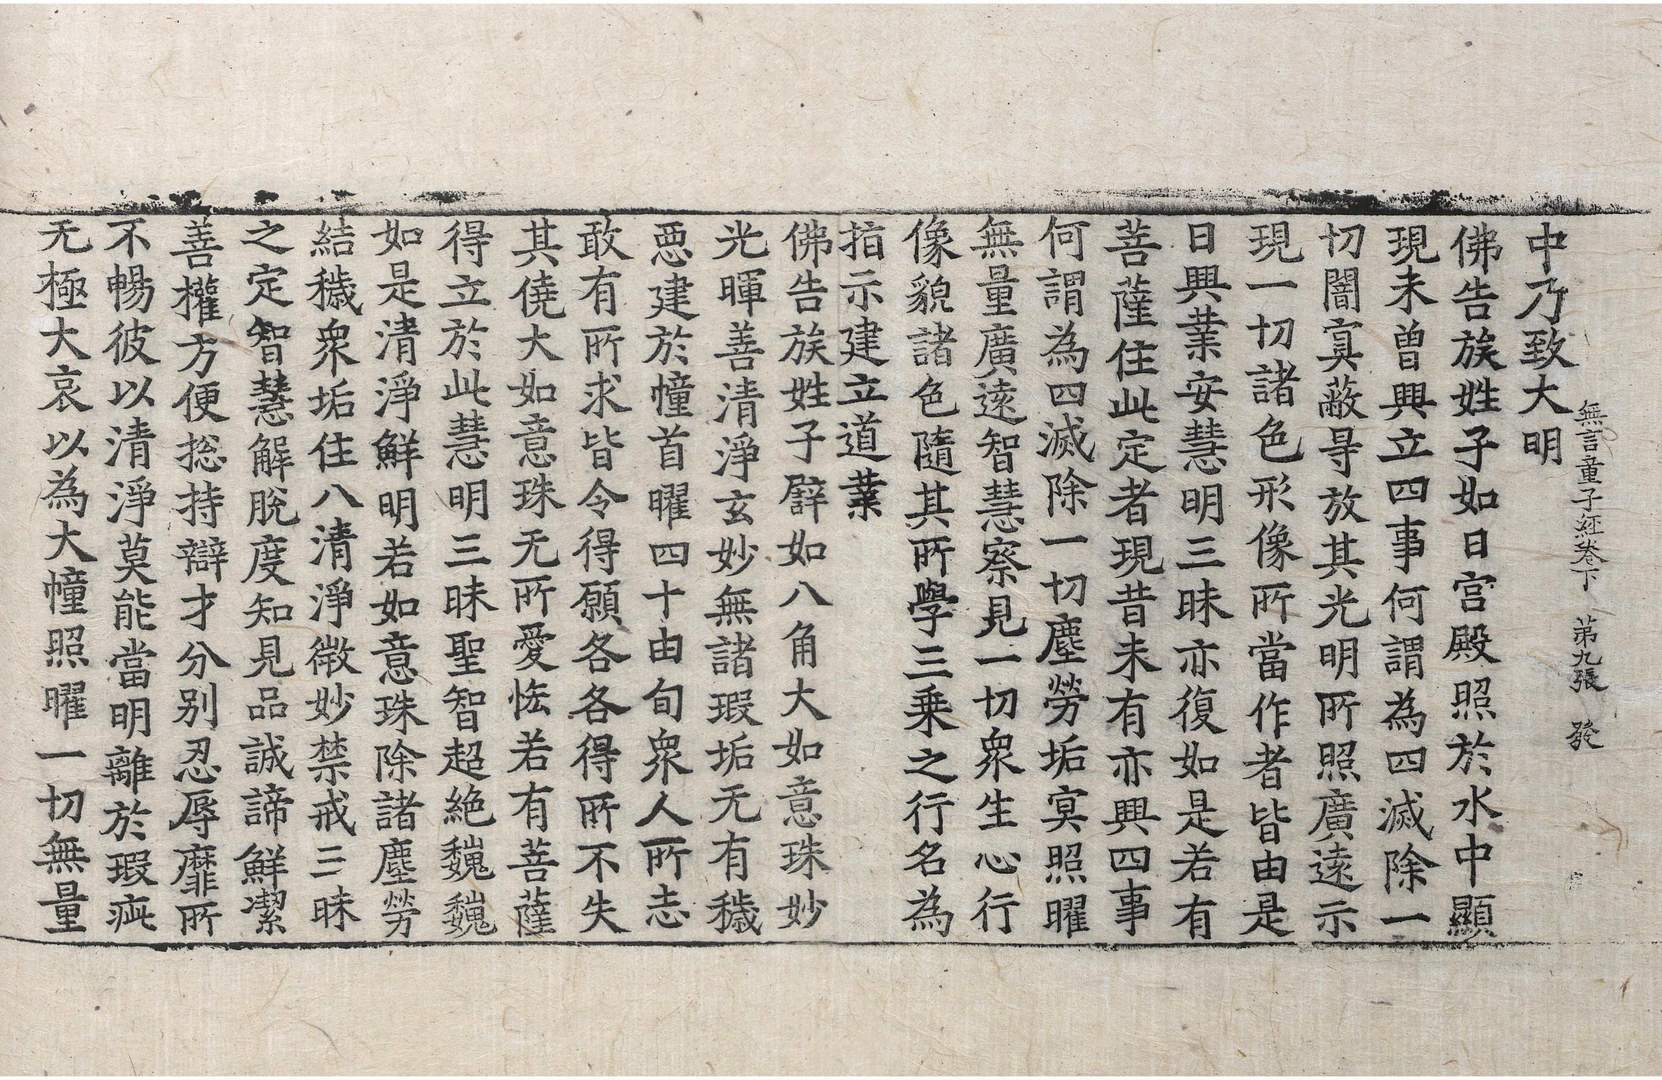 無言童子經卷下 第九張 發
中乃致大明
佛告族姓子如日宮殿照於水中顯
現未曾興立四事何謂為四滅除一
切闇寘蔽㝵放其光明所照廣遠示
現一切諸色形像所當作者皆由是
日興業安慧明三昧亦復如是若有
菩薩住此定者現昔未有亦興四事
何謂為四滅除一切塵勞垢寘照曜
無量廣遠智慧察見一切眾生心行
像貌諸色隨其所學三乘之行名為
指示建立道業
佛告族姓子譬如八角大如意珠妙
光暉善清淨玄妙無諸瑕垢无有穢
惡建於幢首曜四十由旬眾人所志
敢有所求皆令得願各各得所不失
其僥大如意珠无所愛悋若有菩薩
得立於此慧明三昧聖智超絕巍巍
如是清淨鮮明若如意珠除諸塵勞
結穢眾垢住八清淨微妙禁戒三昧
之定智慧解脫度知見品誠諦鮮潔
善權方便捴持辯才分別忍辱靡所
不暢彼以清淨莫能當明離於瑕疵
无極大哀以為大幢照曜一切無量